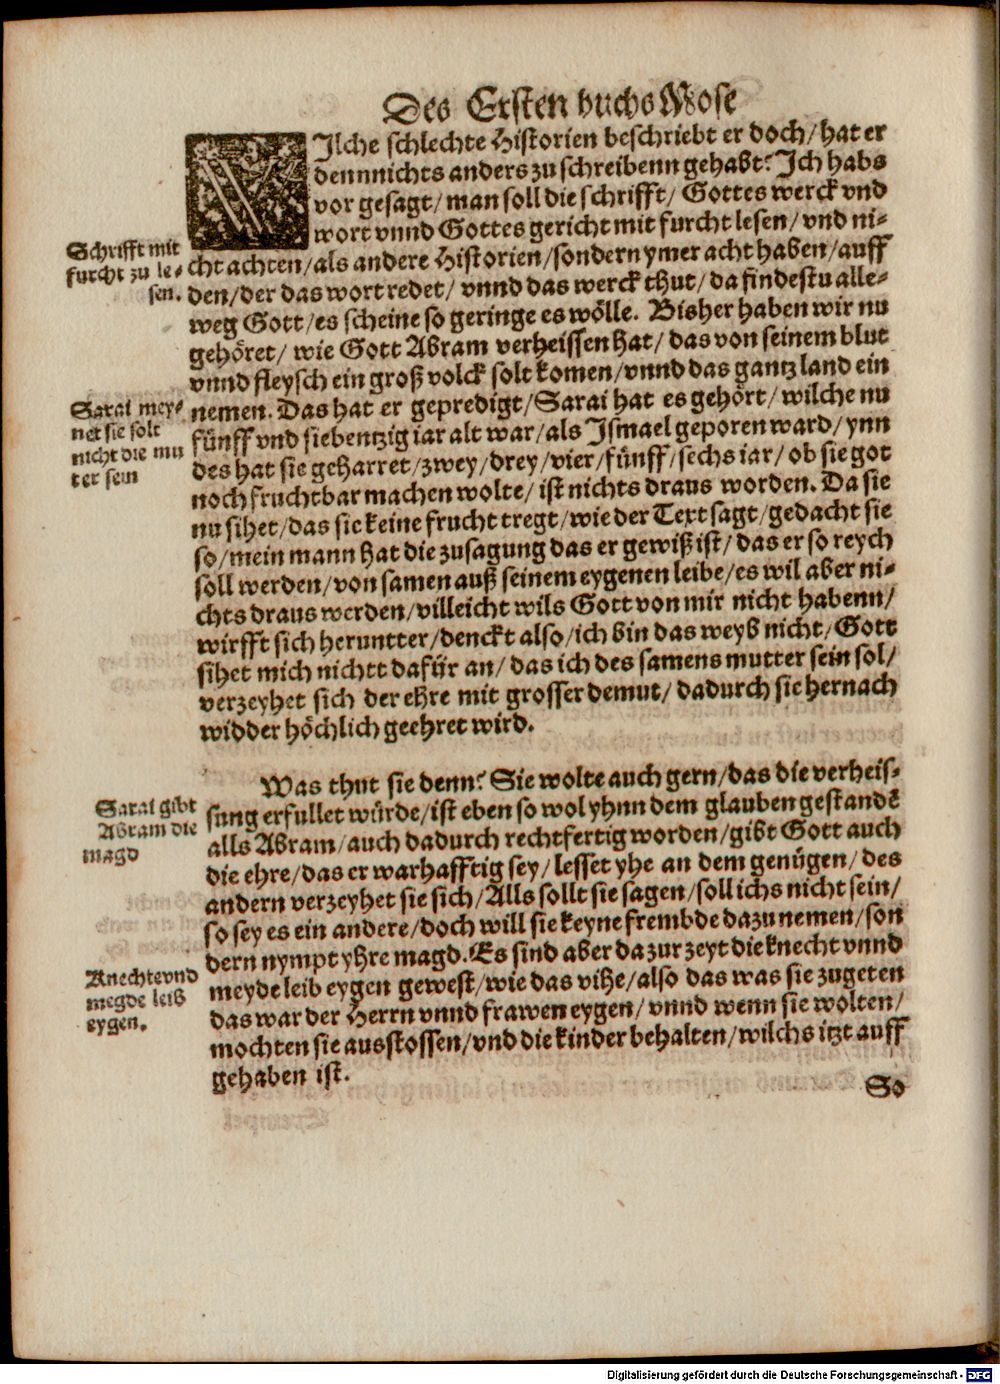 Des Ersten buchs Mose
WIlche schlechte Historien beschriebt er doch/hat er
dennnichts anders zu schreibenn gehabt? Ich habs
vor gesagt/man soll die schrifft/ Gottes werck vnd
wort vnnd Gottes gericht mit furcht lesen/vnd ni-
cht achten/als andere Historien/sondern ymer acht haben/auff
den/der das wort redet/ vnnd das werck thut/da findestu alle-
weg Gott/es scheine so geringe es wölle. Bisher haben wir nu
gehöret/ wie Gott Abram verheissen hat/das von seinem blut
vnnd fleysch ein groß volck solt komen/vnnd das gantz land ein
nemen. Das hat er gepredigt/Sarai hat es gehört/wilche nu
fünff vnd siebentzig iar alt war/als Ismael geporen ward/ynn
des hat sie geharret/zwey/drey/vier/fünff/sechs iar/ob sie got
noch fruchtbar machen wolte/ist nichts draus worden. Da sie
nu sihet/das sie keine frucht tregt/wie der Text sagt/gedacht sie
so/mein mann hat die zusagung das er gewiß ist/das er so reych
soll werden/von samen auß seinem eygenen leibe/es wil aber ni-
chts draus werden/villeicht wils Gott von mir nicht habenn/
wirfft sich heruntter/denckt also/ich bin das weyb nicht/Gott
sihet mich nichtt dafür an/das ich des samens mutter sein sol/
verzeyhet sich der ehre mit grosser demut/dadurch sie hernach
widder höchlich geehret wird.
Schrifft mit
furcht zu le-
sen.
Sarai mey-
net sie solt
nicht die mu
ter sein
Was thut sie denn? Sie wolte auch gern/das die verheis-
sung erfullet würde/ist eben so wol yhnn dem glauben gestandē
alls Abram/auch dadurch rechtfertig worden/gibt Gott auch
die ehre/das er warhafftig sey/lesset yhe an dem genügen/des
andern verzeyhet sie sich/Alls sollt sie sagen/soll ichs nicht sein/
so sey es ein andere/doch will sie keyne frembde dazu nemen/son
dern nympt yhre magd. Es sind aber da zur zeyt die knecht vnnd
meyde leib eygen gewest/wie das vihe/also das was sie zugeten
das war der Herrn vnnd frawen eygen/vnnd wenn sie wolten/
mochten sie ausstossen/vnd die kinder behalten/wilchs itzt auff
gehaben ist.
Sarai gibt
Abram die
magd
Knechte vnd
megde leib
eygen.
So
Digitalisierung gefördert durch die Deutsche Forschungsgemeinschaft - DFG